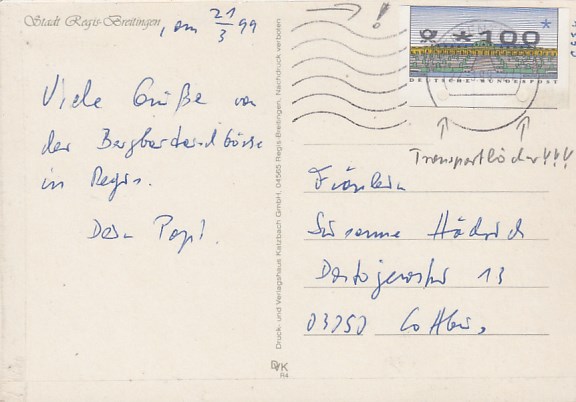 Stadt Regis-Breitingen, am 21/3 99
!
*100
DEUTSCHE BUNDESPOST
Viele Grüße von
der Bergbardandbörse
in Regis.
Dein Papi.
Druck- und Verlagshaus Katzbach GmbH, 04565 Regis-Breitingen, Nachdruck verboten
Transportlöcher!!!
Fräulein
Susanne
13
Cottbus,
DVK
R4